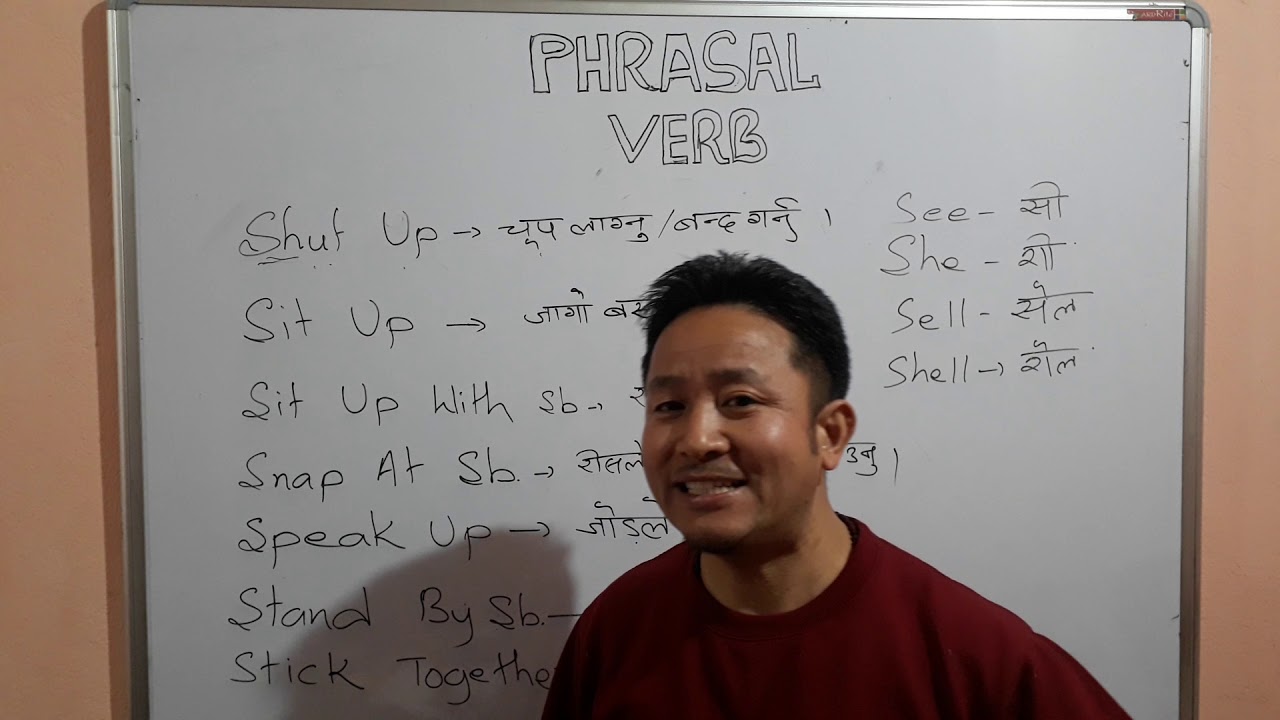 PHRASAL
VERB
Shut Up → चूप लाग्नु / बन्द गर्नु ।
Sit Up → जागो
Sit Up With Sb. →
Snap At Sb. → रीसले
Speak Up → जोड़ले
Stand By Sb. –
Stick
See - सी
She - शी
Sell - सेल
Shell → शेल